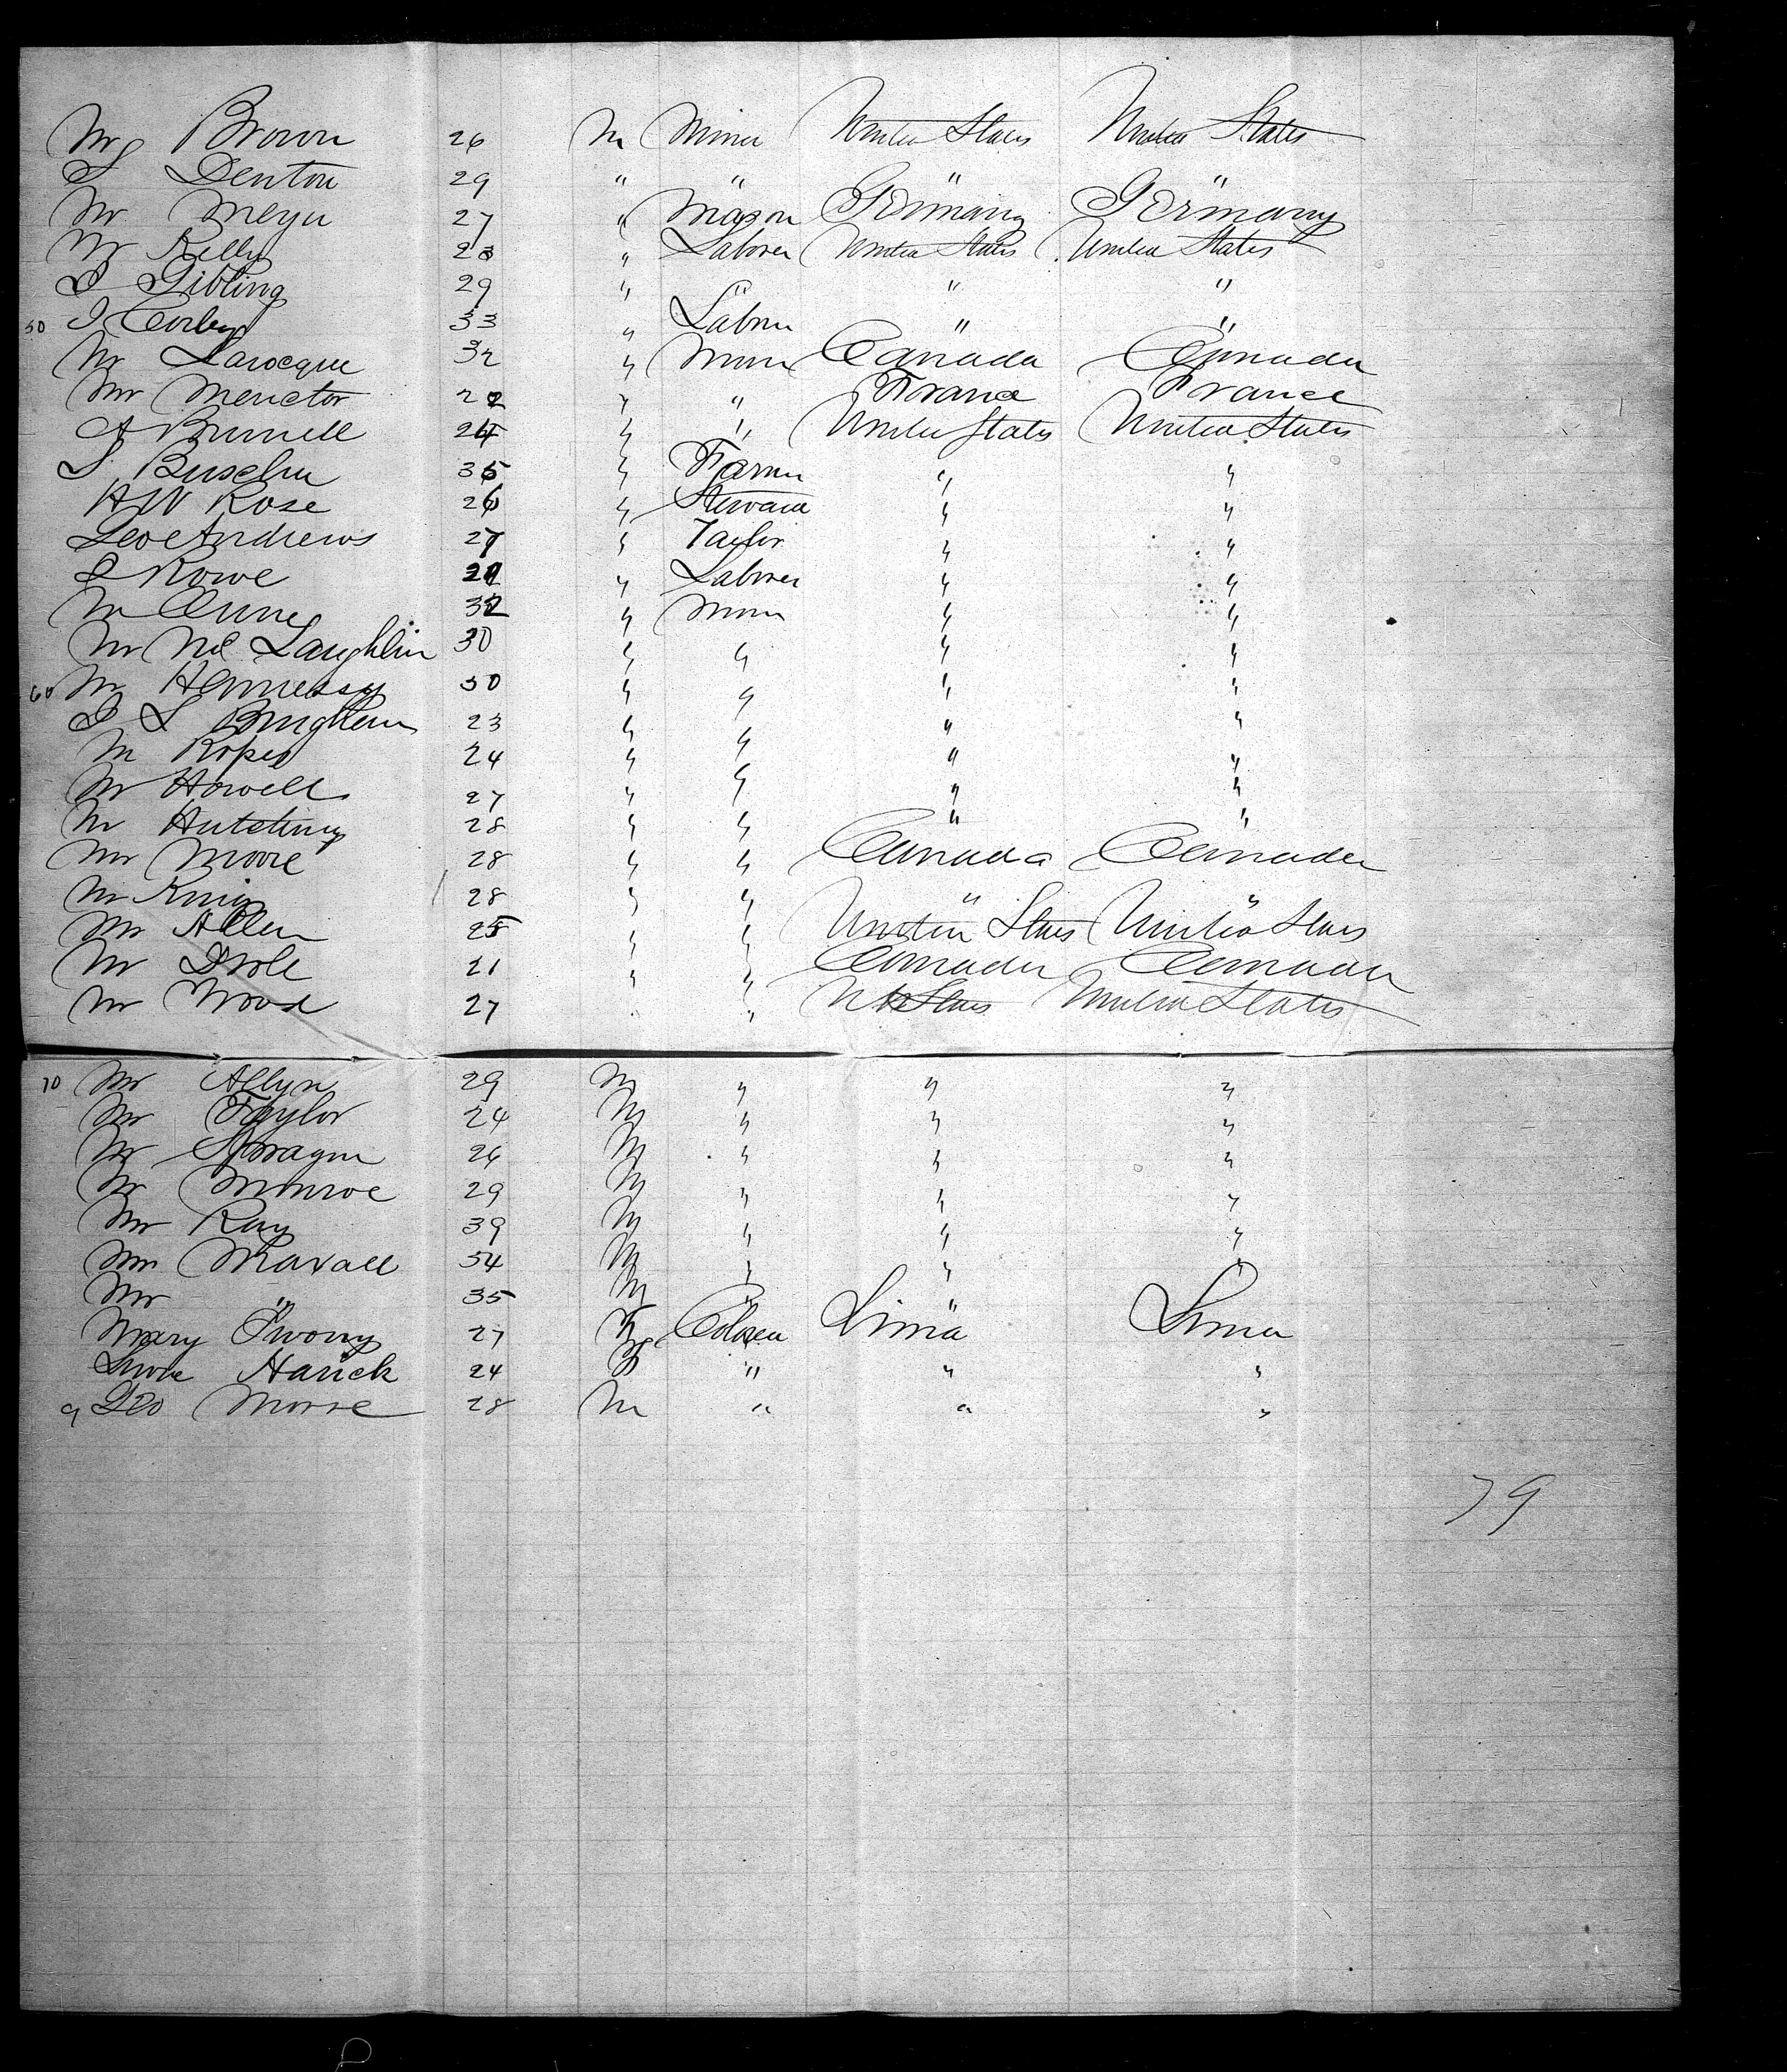 Mr Brown 26 M Miner United States United States
S Denton 29 " " " "
Mr Meyer 27 " Mason Germany Germany
Mr Kelly 23 " Laborer United States United States
I Sibling 29 " " " "
50 I Corley 33 " Labrer " "
Mr Larocque 32 " Miner Canada Canada
Mr Menctor 22 " " France France
A Brunell 24 " " United States United States
S 35 " Farmer " "
H W Rose 26 " Steward " "
Leo Andrews 27 " Taylor " "
I Rowe 29 " Laborer " "
Mr 32 " Miner " "
Mr Mc Laughlin 30 " " " "
60 Mr Hennessy 30 " " " "
I L Bingham 23 " " " "
M Ropes 24 " " " "
Mr Howell 27 " " " "
Mr Hutchins 28 " " " "
Mr Moore 28 " " Canada Canada
Mr King 28 " " " "
Mr Allen 25 " " United States United States
Mr 21 " " Canada Canada
Mr Wood 27 " " United States
70 Mr Allyn 29 M " " "
Mr Taylor 24 M " " "
Mr Sprague 26 M " " "
Mr Monroe 29 M " " "
Mr Ray 39 M " " "
Mr 34 M " " "
Mr " 35 M " " "
Mary 27 F China China
Harick 24 F " " "
9 Geo Morse 28 M " " "
79